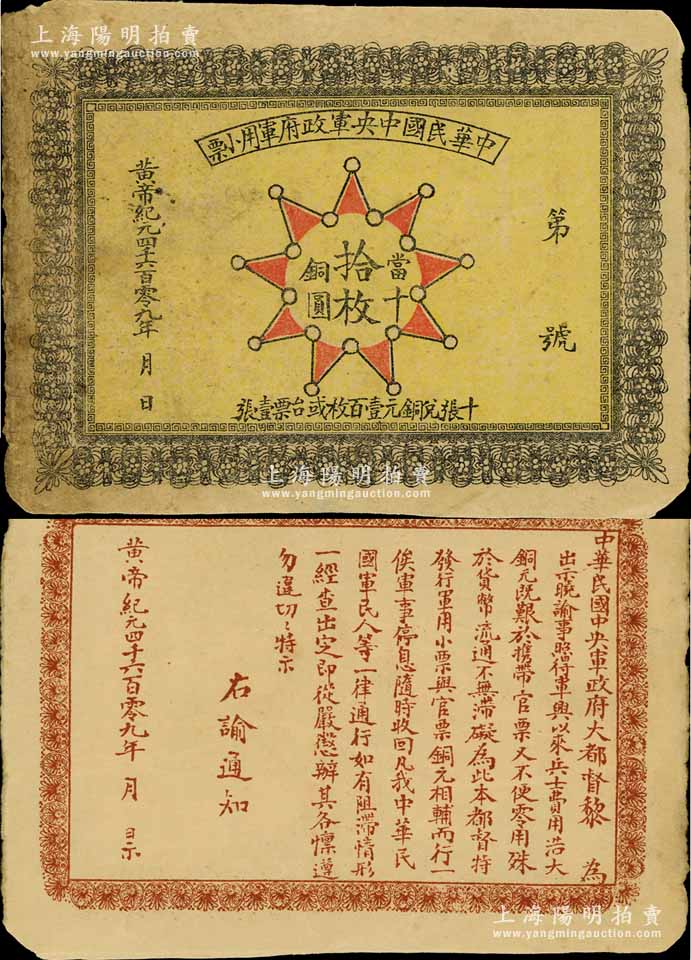 上海陽明拍賣
www.yangmingauction.com
中華民國中央軍政府軍用小票
第 號
當十
拾枚
銅圓
黃帝紀元四千六百零九年 月 日
十張兌銅元壹百枚或台票壹張
上海陽明拍賣
www.yangmingauction.com
中華民國中央軍政府大都督黎 為
出示曉諭事照得軍興以來兵士費用浩大
銅元既艱於携帶官票又不便零用殊
於貨幣流通不無滯礙為此本都督特
發行軍用小票與官票銅元相輔而行一
俟軍事停息隨時收回凡我中華民
國軍民人等一律通行如有阻滯情形
一經查出定即從嚴懲辦其各懍遵
勿違切切特示
右諭通知
黃帝紀元四千六百零九年 月 日示
上海陽明拍賣
www.yangmingauction.com